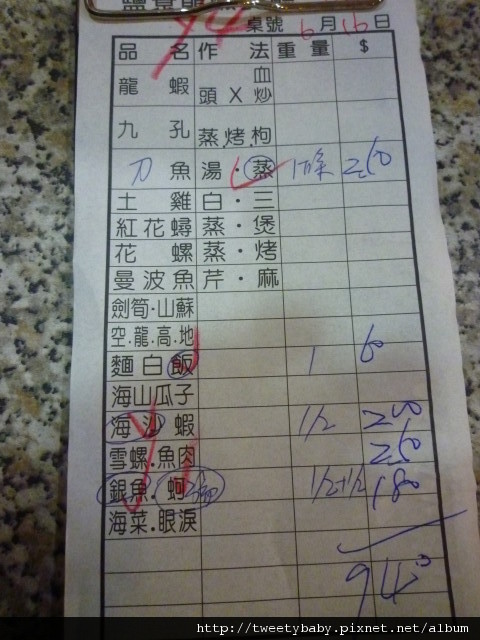 桌號 6月16日
Y4
品名 作法 重量 $
龍蝦 血 頭 X 炒
九孔 蒸.烤.枸
刀魚 湯.蒸 1條 250
土雞 白.三
紅花蟳 蒸.煲
花螺 蒸.烤
曼波魚 芹.麻
劍筍.山蘇
空.龍.高.地
麵白飯 1 60
海山瓜子
海沙蝦 1/2 200
雪螺.魚肉 250
銀魚.蚵 1/2+1/2 180
海菜.眼淚
940
http://tweetybaby.pixnet.net/album